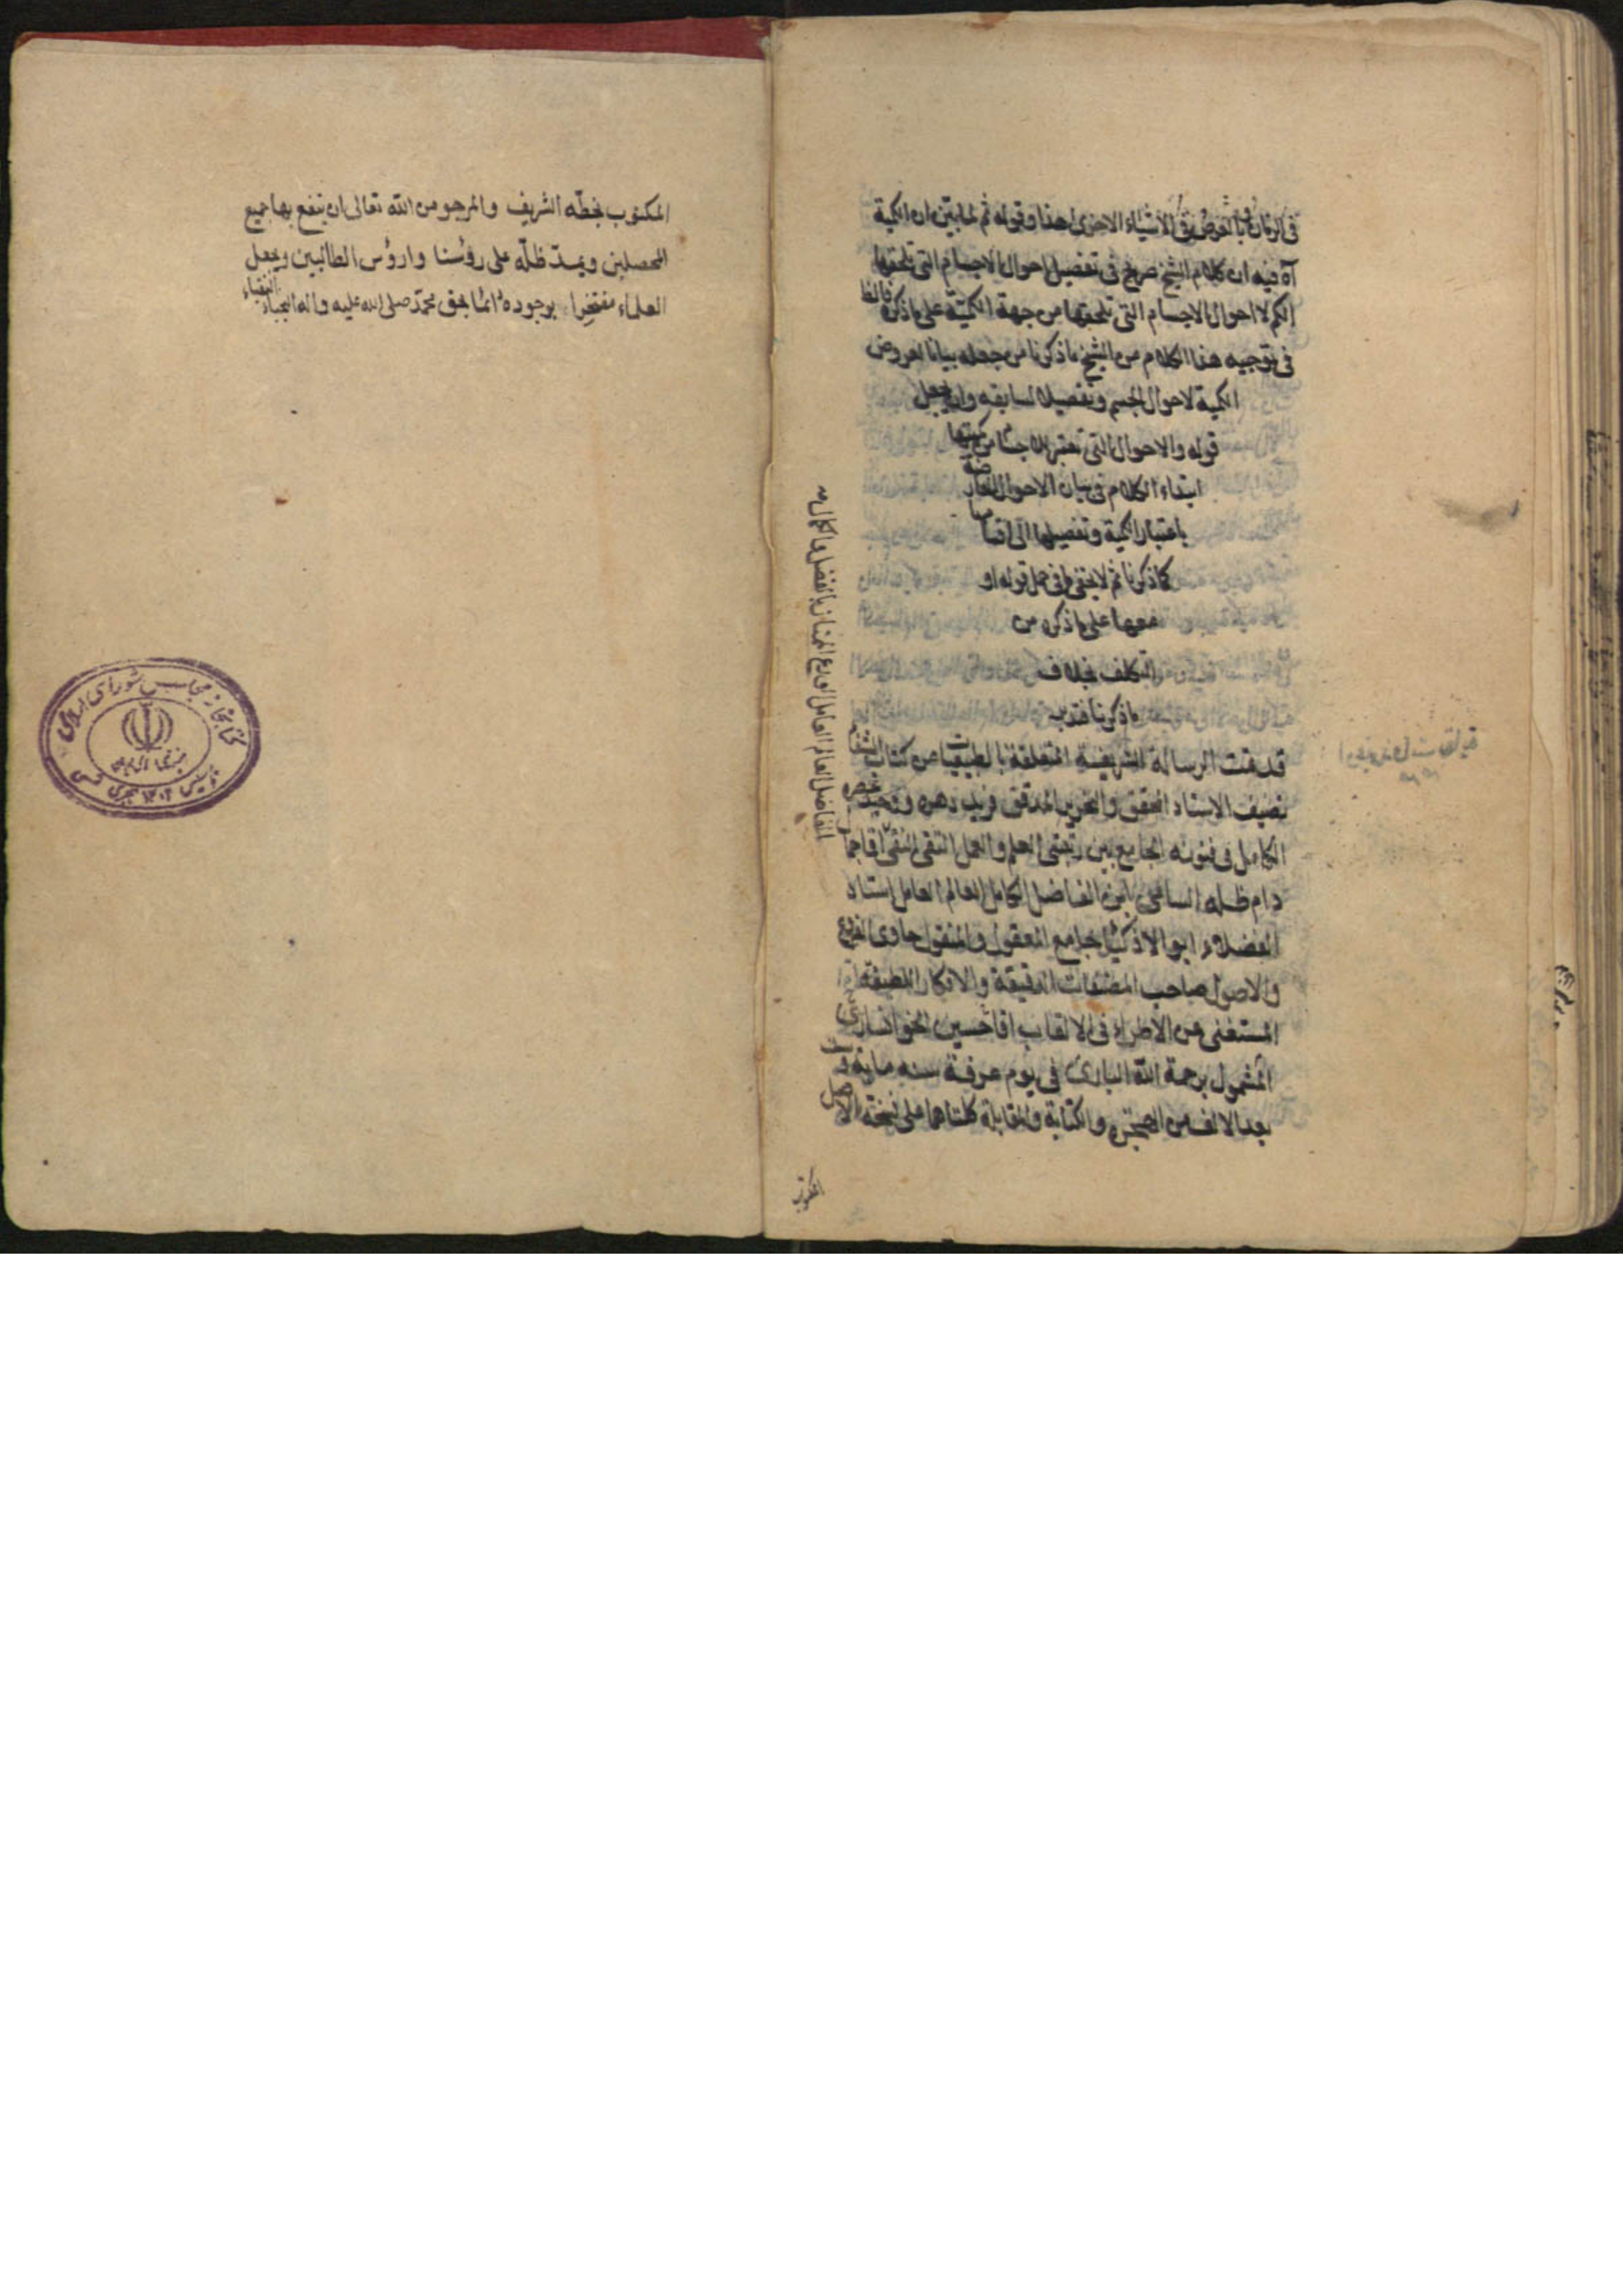 في الزمان و بالعرض في الاشياء الاخرى هذا و قوله ثم لما بيّن ان الكمية
آه فيه ان كلام الشيخ صريح في تفصيل احوال الاجسام التي تلحقها
الكم لا احوال الاجسام التي تلحقها من جهة الكمية على ما ذكره فالظا
في توجيه هذا الكلام من الشيخ ما ذكرنا من جعله بيانا لعروض
الكمية لاحوال الجسم و تفصيلا لسابقه و ان جعل
قوله و الاحوال التي تعتبر للاجسام من كميتها
ابتداء الكلام في بيان الاحوال العارضة
باعتبار الكمية و تفصيلها الى اقسا
كما ذكرنا ثم لا يخفى ما في حمل قوله او
معها على ما ذكره من
التكلف بخلاف
ما ذكرنا فتدبر
قد تمت الرسالة الشريفة المتعلقة بالطبيعيات من كتاب الشفاء
تصنيف الاستاد المحقق و النحرير المدقق فريد دهره و وحيد عصره
الكامل في فنونه الجامع بين رتبتى العلم و العمل التقى النقى اقا جمال
دام ظله السامى ابن الفاضل الكامل العالم العامل استاد
الفضلاء ابو الاذكياء جامع المعقول و المنقول حاوى الفروع
و الاصول صاحب المصنفات الدقيقة و الافكار اللطيفة
المستغنى عن الاطراء في الالقاب اقا حسين الخوانسارى
المشمول برحمة الله البارى في يوم عرفة سنه ماية و
بعد الالف من الهجرة و الكتابة و المقابلة كلتاهما على نسخة الاصل
المكتوب
الفاضل العالم العامل الورع الممتاز بالفضل و الكمال
المكتوب بخطه الشريف و المرجو من الله تعالى ان ينفع بها جميع
المحصلين و يمدّ ظلّه على رؤسنا و ارؤس الطالبين و يجعل
العلماء مفتخرا بوجوده دائما بحق محمّد صلى الله عليه و اله النجباء النقباء
كتابخانه مجلس شورای اسلامی
تأسیس ۱۳۰۲ هجری شمسی